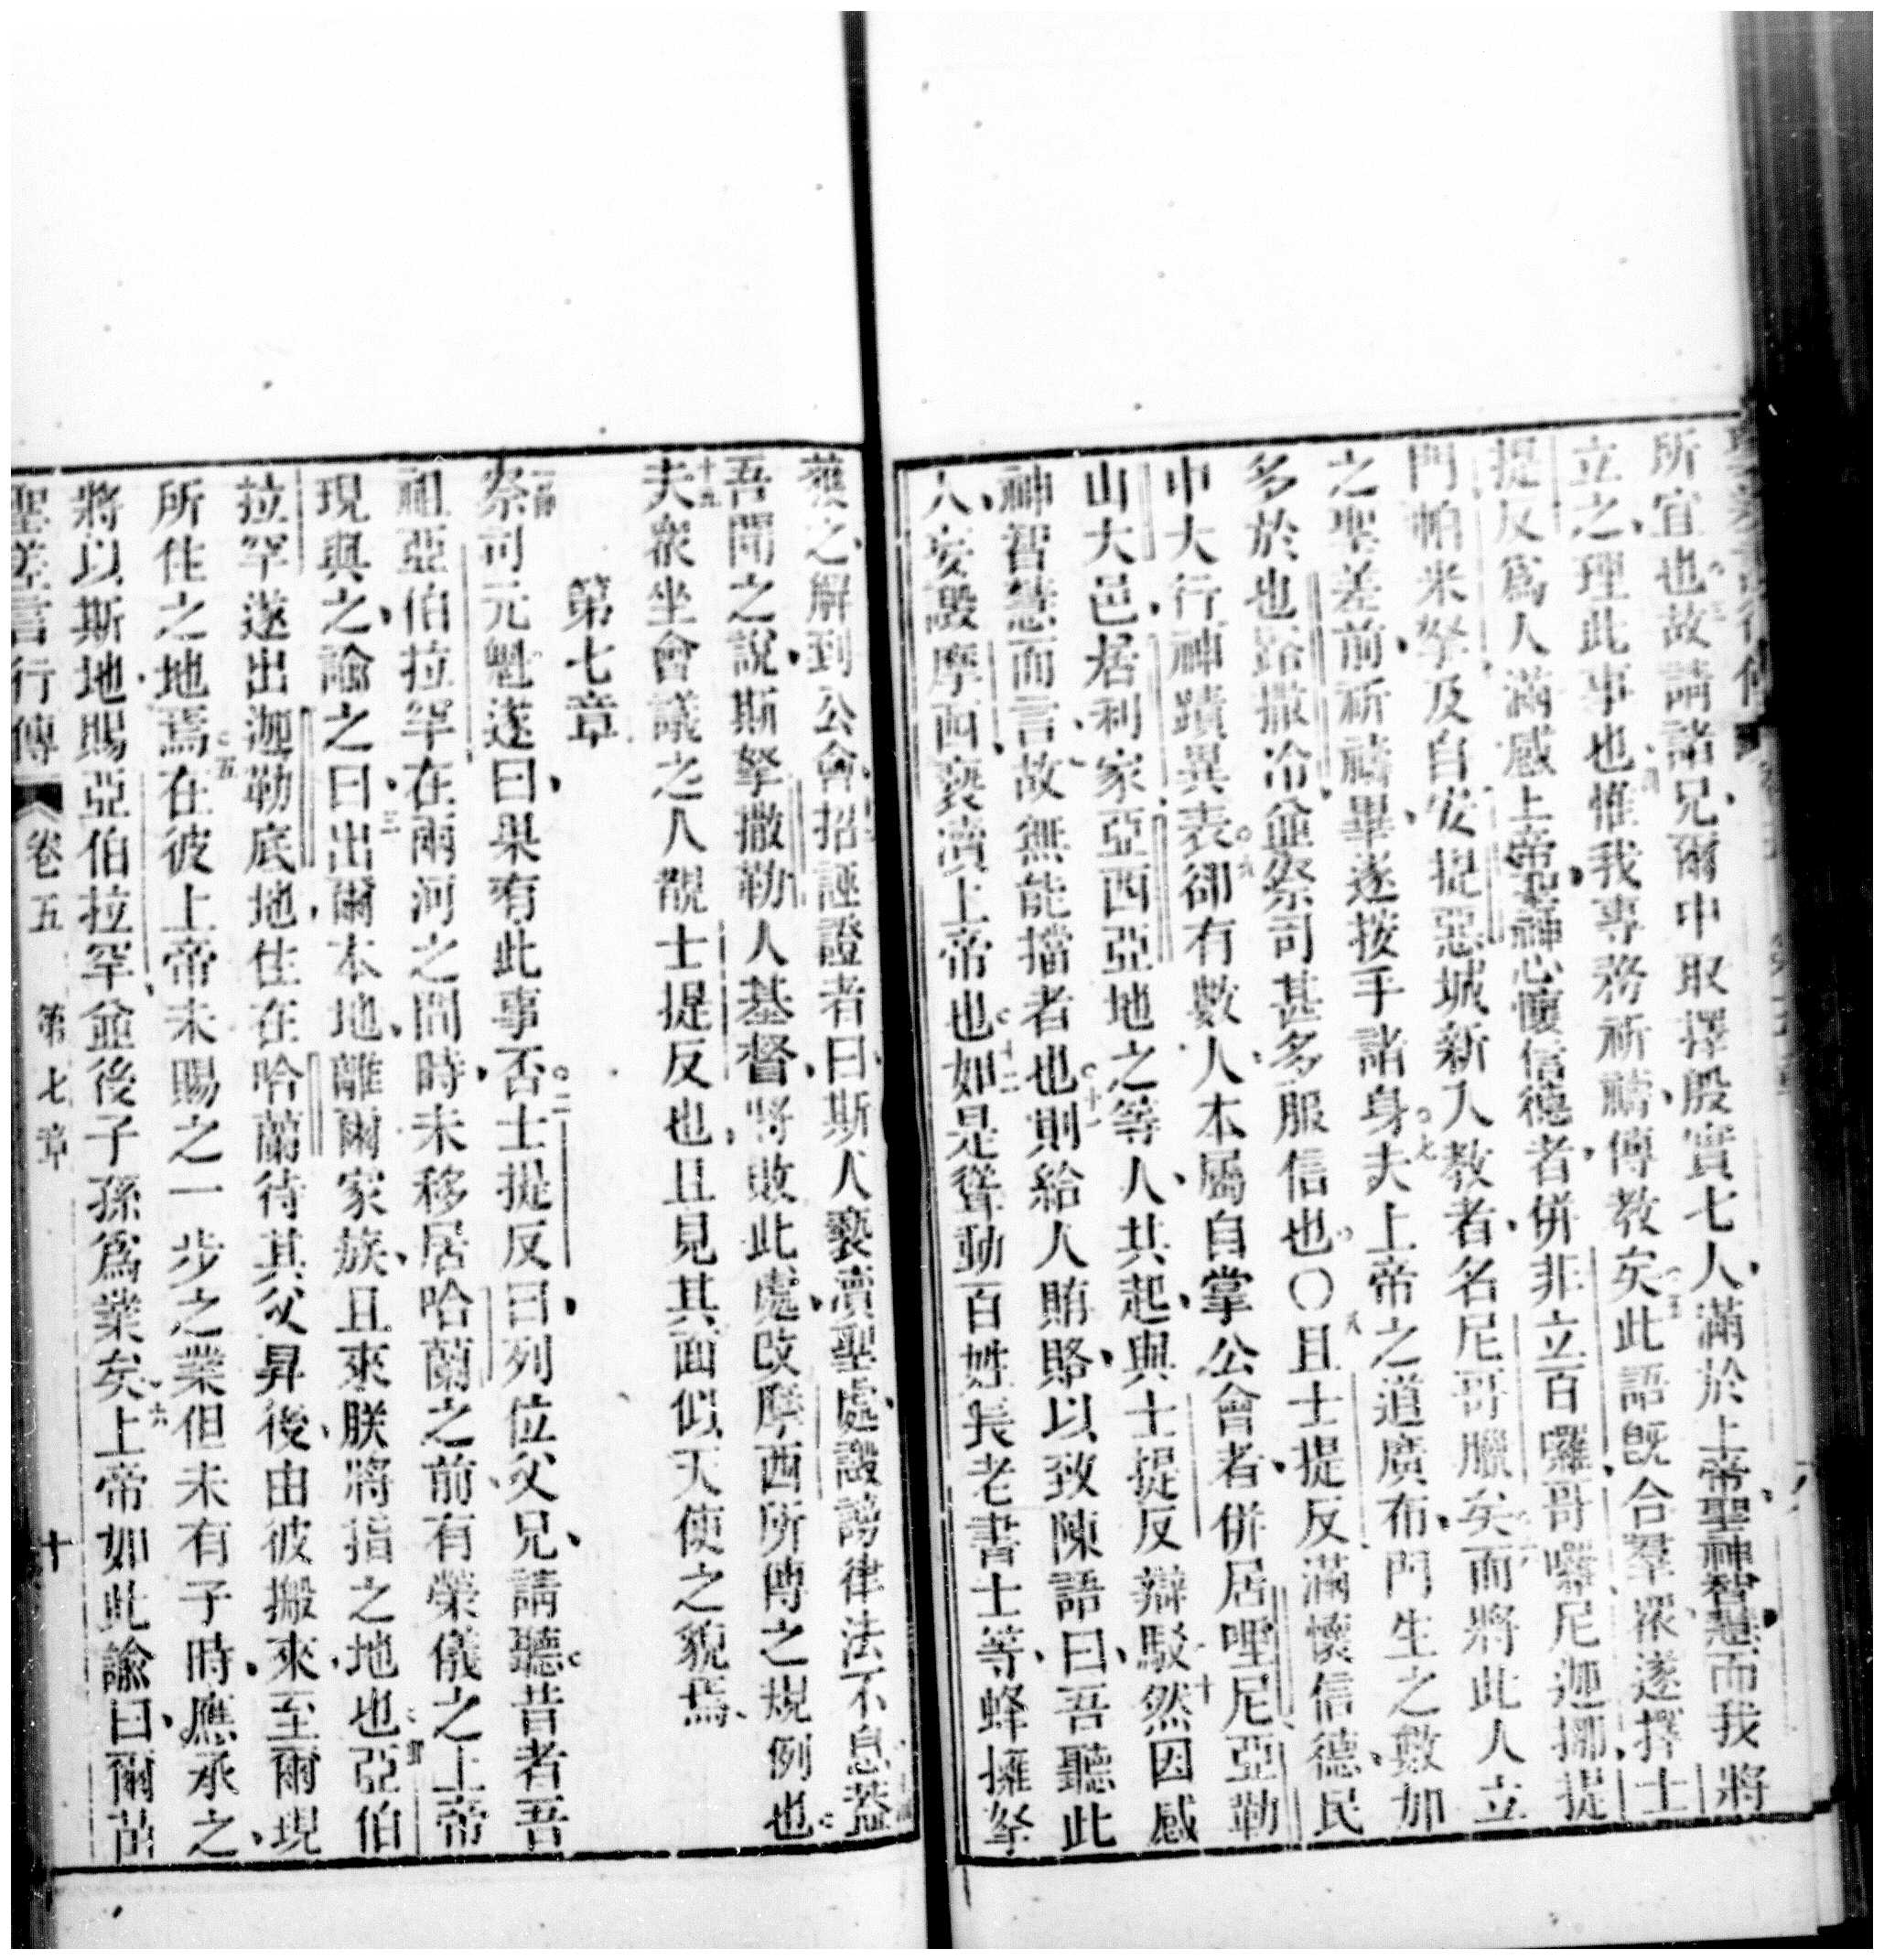 所宜也故請諸兄爾中取擇殷實七人滿於上帝聖神智慧而我將
立之理此事也惟我專務祈禱傳教矣此語既合羣眾遂擇士
提反爲人滿感上帝聖神心懷信德者併非立百囉哥囉尼迦挪提
門帕米拏及自安提惡城新入教者名尼哥臘矣而將此人立
之聖差前祈禱畢遂按手諸身夫上帝之道廣布門生之數如
多於也路撒冷並祭司甚多服信也〇且士提反滿懷信德民
中大行神蹟異表卻有數人本屬自掌公會者併居哩尼亞勒
山大邑居利家亞西亞地之等人共起與士提反辯駁然因感
神智慧而言故無能擋者也則給人賄賂以致陳語曰吾聽此
人妄譭摩西褻瀆上帝也如是聳動百姓長老書士等蜂擁拏
獲之解到公會招誣證者曰斯人褻瀆聖處譭謗律法不息蓋
吾聞之說斯拏撒勒人基督將敗此處改摩西所傳之規例也
夫衆坐會議之人覩士提反也且見其面似天使之貌焉
第七章
祭司元魁遂曰果有此事否士提反曰列位父兄請聽昔者吾
祖亞伯拉罕在兩河之間時未移居哈蘭之前有榮儀之上帝
現與之諭之曰出爾本地離爾家族且來朕將指之地也亞伯
拉罕遂出迦勒底地住在哈蘭待其父昇後由彼搬來至爾現
所住之地焉在彼上帝未賜之一步之業但未有子時應承之
將以斯地賜亞伯拉罕並後子孫爲業矣上帝如此諭曰爾苗
聖差言行傳 卷五 第七章 十